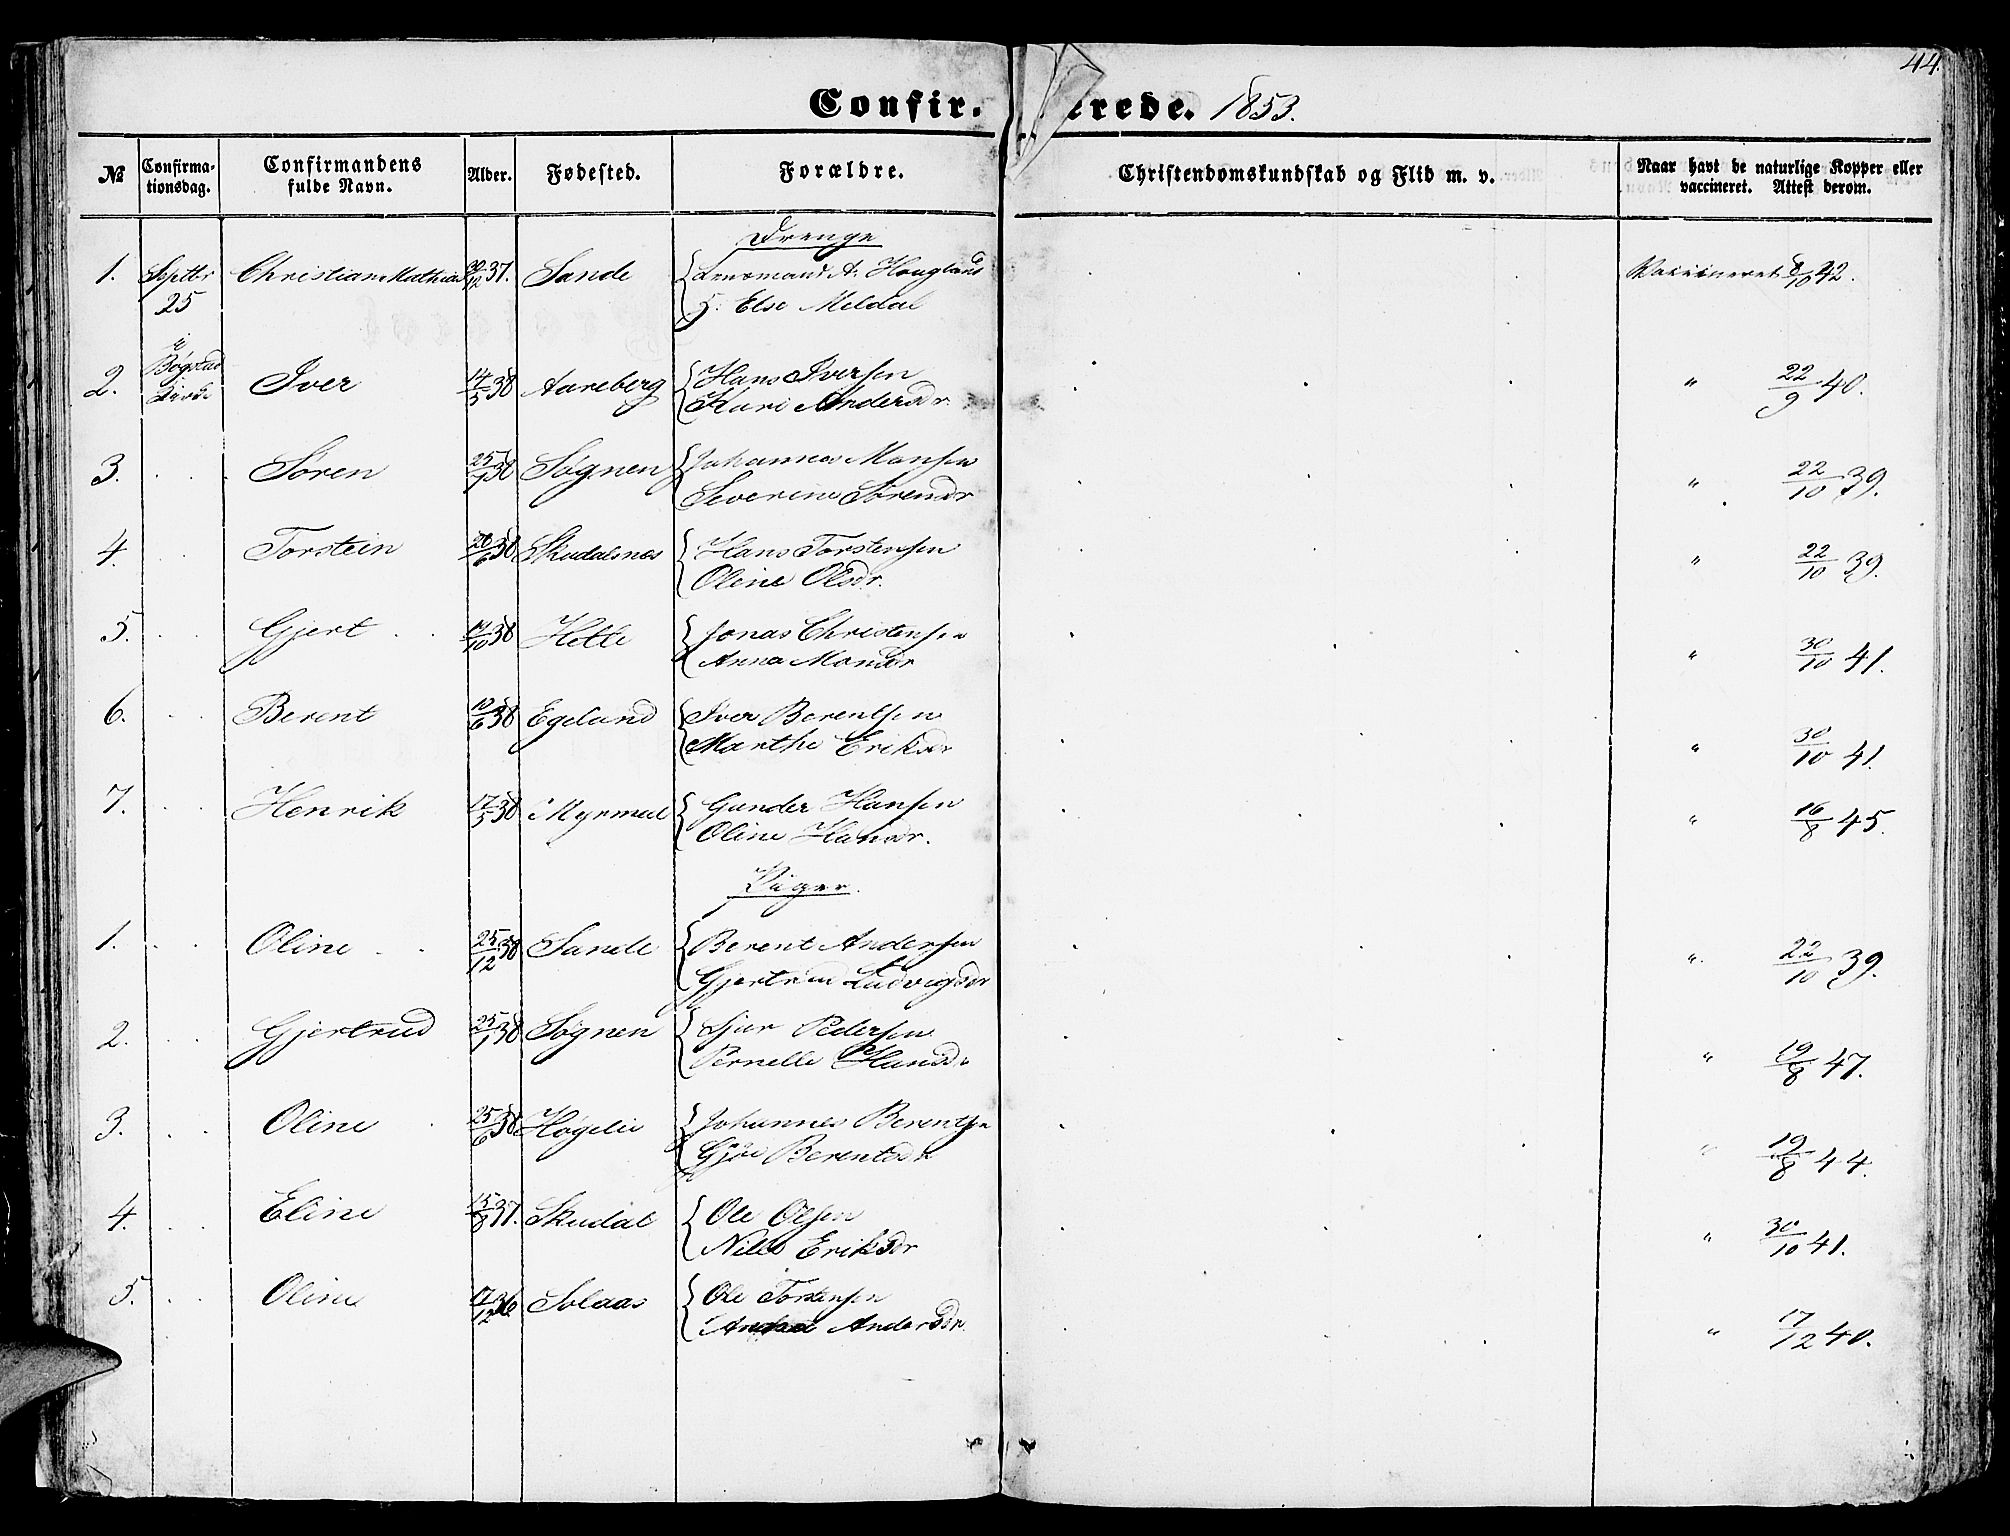 44.
Confir. erede. 1853.
№ Confirmationsdag. Confirmandens fulde Navn. Alder. Fødested. Forældre. Christendomskundskab og Flid m. v. Naar havt de naturlige Kopper eller vaccineret. Attest derom.
Drenge
1. Septbr 25 Christian Mathias 30/12 37. Sande Lensmand A. Hougland Else Meldal Vaccineret 8/10 42.
2. i Bøgstad Kirke Iver 14/5 38 Aareberg Hans Iversen Kari Andersdr. " 22/9 40.
3. Søren 25/9 38 Søgnen Johannes Monsen Severine Sørensdr " 22/10 39.
4. Torstein 26/6 38 Skudalsnes Hans Torstensen Oline Olsdr. " 22/10 39.
5. Gjert 14/10 38 Hetle Jonas Christensen Anna Monsdr " 30/10 41.
6. Berent 10/6 38 Egeland Iver Berentsen Marthe Eriksdr " 30/10 41.
7. Henrik 17/5 38 Myrmel Gunder Hansen Oline Hansdr. " 16/8 45.
Piger.
1. Oline 25/12 38 Sande Berent Andersen Gjertrud Ludvigsdr " 22/10 39.
2. Gjertrud 25/1 38 Søgnen Sjur Pedersen Pernelle Hansdr " 19/8 47.
3. Oline 25/6 38 Høgelie Johannes Berentsen Gjøe Berentsdr " 19/8 44.
4. Eline 15/8 37. Skudal Ole Olsen Nille Eriksdr " 30/10 41.
5. Oline 17/12 36 Solaas Ole Torstensen Andersdr. " 17/12 40.